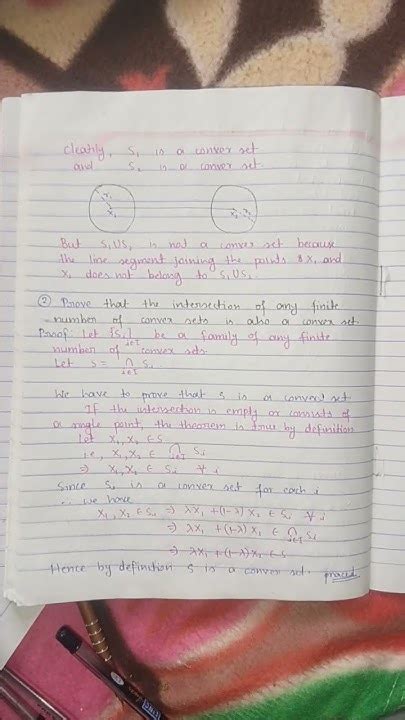 Clearly, S₁ is a convex set
and S₂ is a convex set
x₁
x₂
x₁ x₂
But S₁US₂ is not a convex set because
the line segment joining the points x₁ and
x₂ does not belong to S₁US₂.
② Prove that the intersection of any finite
number of convex sets is also a convex set.
Proof: Let {Sᵢ}ᵢ∈I be a family of any finite
number of convex sets.
Let S = ∩ᵢ∈I Sᵢ.
We have to prove that S is a convex set
If the intersection is empty or consists of
a single point, the theorem is true by definition
Let x₁, x₂ ∈ S
i.e, x₁, x₂ ∈ ∩ᵢ∈I Sᵢ
⇒ x₁, x₂ ∈ Sᵢ ∀ i
Since Sᵢ is a convex set for each i
∴ we have
x₁, x₂ ∈ Sᵢ ⇒ λx₁ + (1-λ) x₂ ∈ Sᵢ ∀ i
⇒ λx₁ + (1-λ) x₂ ∈ ∩ᵢ∈I Sᵢ
⇒ λx₁ + (1-λ)x₂ ∈ S
Hence by definition S is a convex set. proved